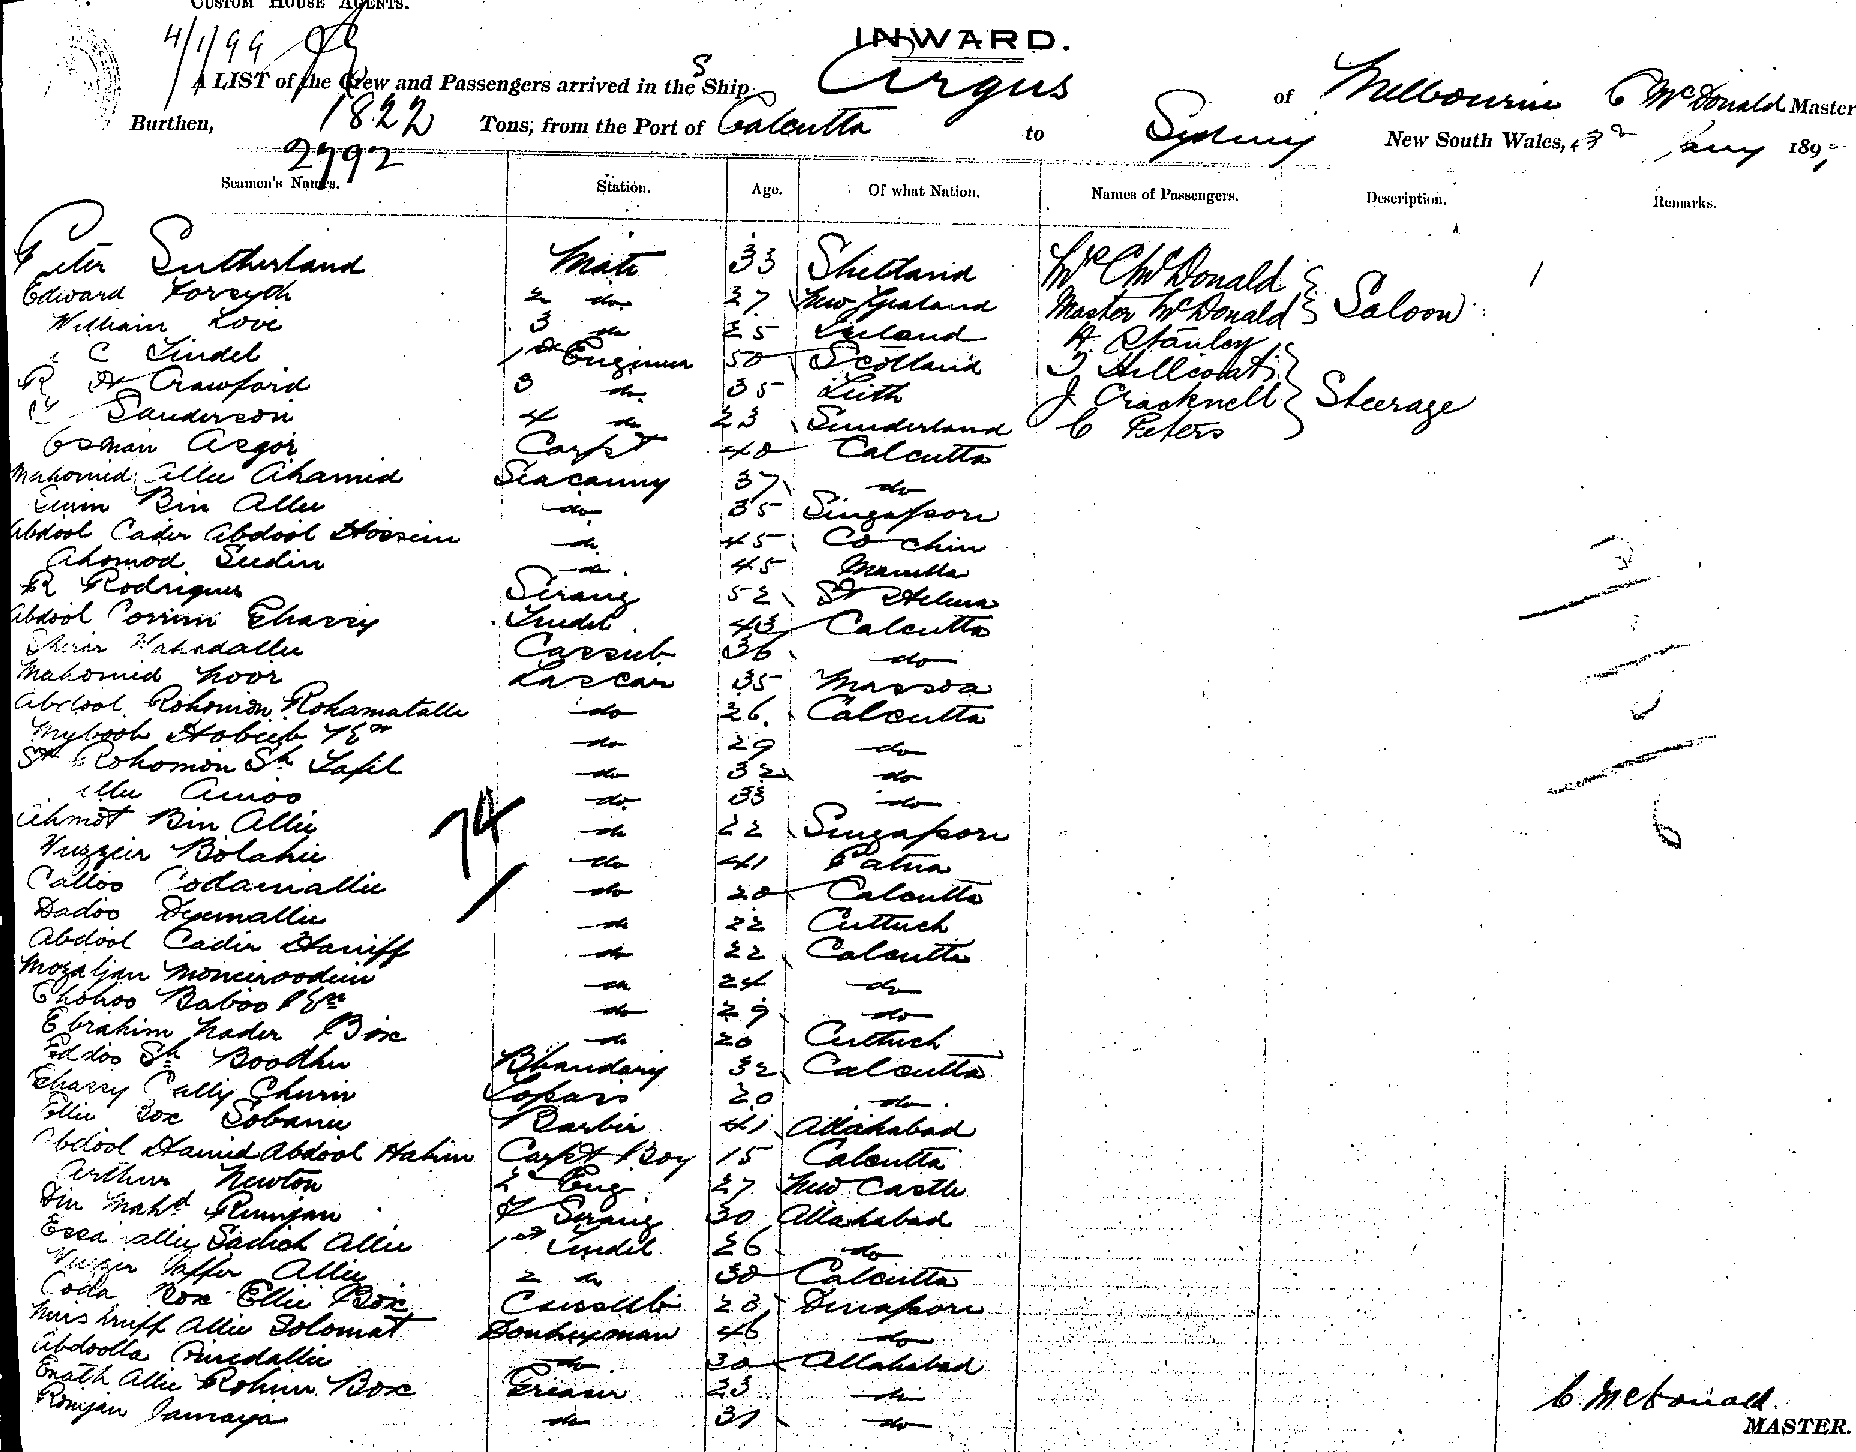 CUSTOM HOUSE AGENTS.
4/1/99
INWARD.
A LIST of the Crew and Passengers arrived in the S Ship Argus of Melbourne C McDonald Master
Burthen, 1822 Tons; from the Port of Calcutta to Sydney New South Wales, 3 Jany 189
2792
Seamen's Names. Station. Age. Of what Nation. Names of Passengers. Description. Remarks.
Peter Sutherland Mate 33 Shetland Mrs McDonald Saloon 1
Edward Forsyth 2 do 27 New Zealand Master McDonald
William Love 3 do 25 Ireland A Stanley
C Lindel 1st Engineer 50 Scotland T Hillcoat Steerage
R H Crawford 3 do 35 Leith J Cracknell
Sanderson 4 do 23 Sunderland C Peters
Osman Asgor Carpt 40 Calcutta
Mahomed Allee Ahamed Seacunny 37 do
Bin Allee do 35 Singapore
Abdool Cader Abdool Hossein do 45 Cochin
Ahomod Seedin do 45 Manilla
R Rodrigues Serang 52 St Helena
Abdool Corrim Gharry Tindel 43 Calcutta
Cassub 36 do
Mahomed Noor Lascar 35 Massoa
Abdool Rohomon Rohamatalle do 26 Calcutta
Myboob Hobeeb do 29 do
Sk Rohomon Sk Tafel do 32 do
Allee Amoo do 33 do
Ahmot Bin Allie do 22 Singapore
74
Vuzzeer Bolahie do 41 Patna
Calloo Codamallie do 20 Calcutta
Dadoo Deemallie do 22 Cuttuck
Abdool Cader Haniff do 22 Calcutta
Mozaljan Moneeroodeen do 24 do
Baboo do 29 do
Ebrahim Nader Box do 20 Cuttuck
Eddoo Sk Boodhu Bhandary 32 Calcutta
Charry Cally Churn Topass 20 do
Ellie Box Sobanie Barber 41 Allahabad
Abdool Hamid Abdool Hakim Carpt Boy 15 Calcutta
Arthur Newton 2 Eng 27 New Castle
Din Mahd Rumjan Serang 30 Allahabad
Essa Allie Sadick Allie 1st Tindel 26 do
Vuzeer Jaffer Allie 2 do 30 Calcutta
Coda Box Ellie Box Cassub 23 Dinapore
Allie Solomat Donkeyman 46 do
Abdoolla do 30 Allahabad
Enath Allie Rohim Box Greaser 23 do
Romjan Jamaya do 31 do
C McDonald
MASTER.